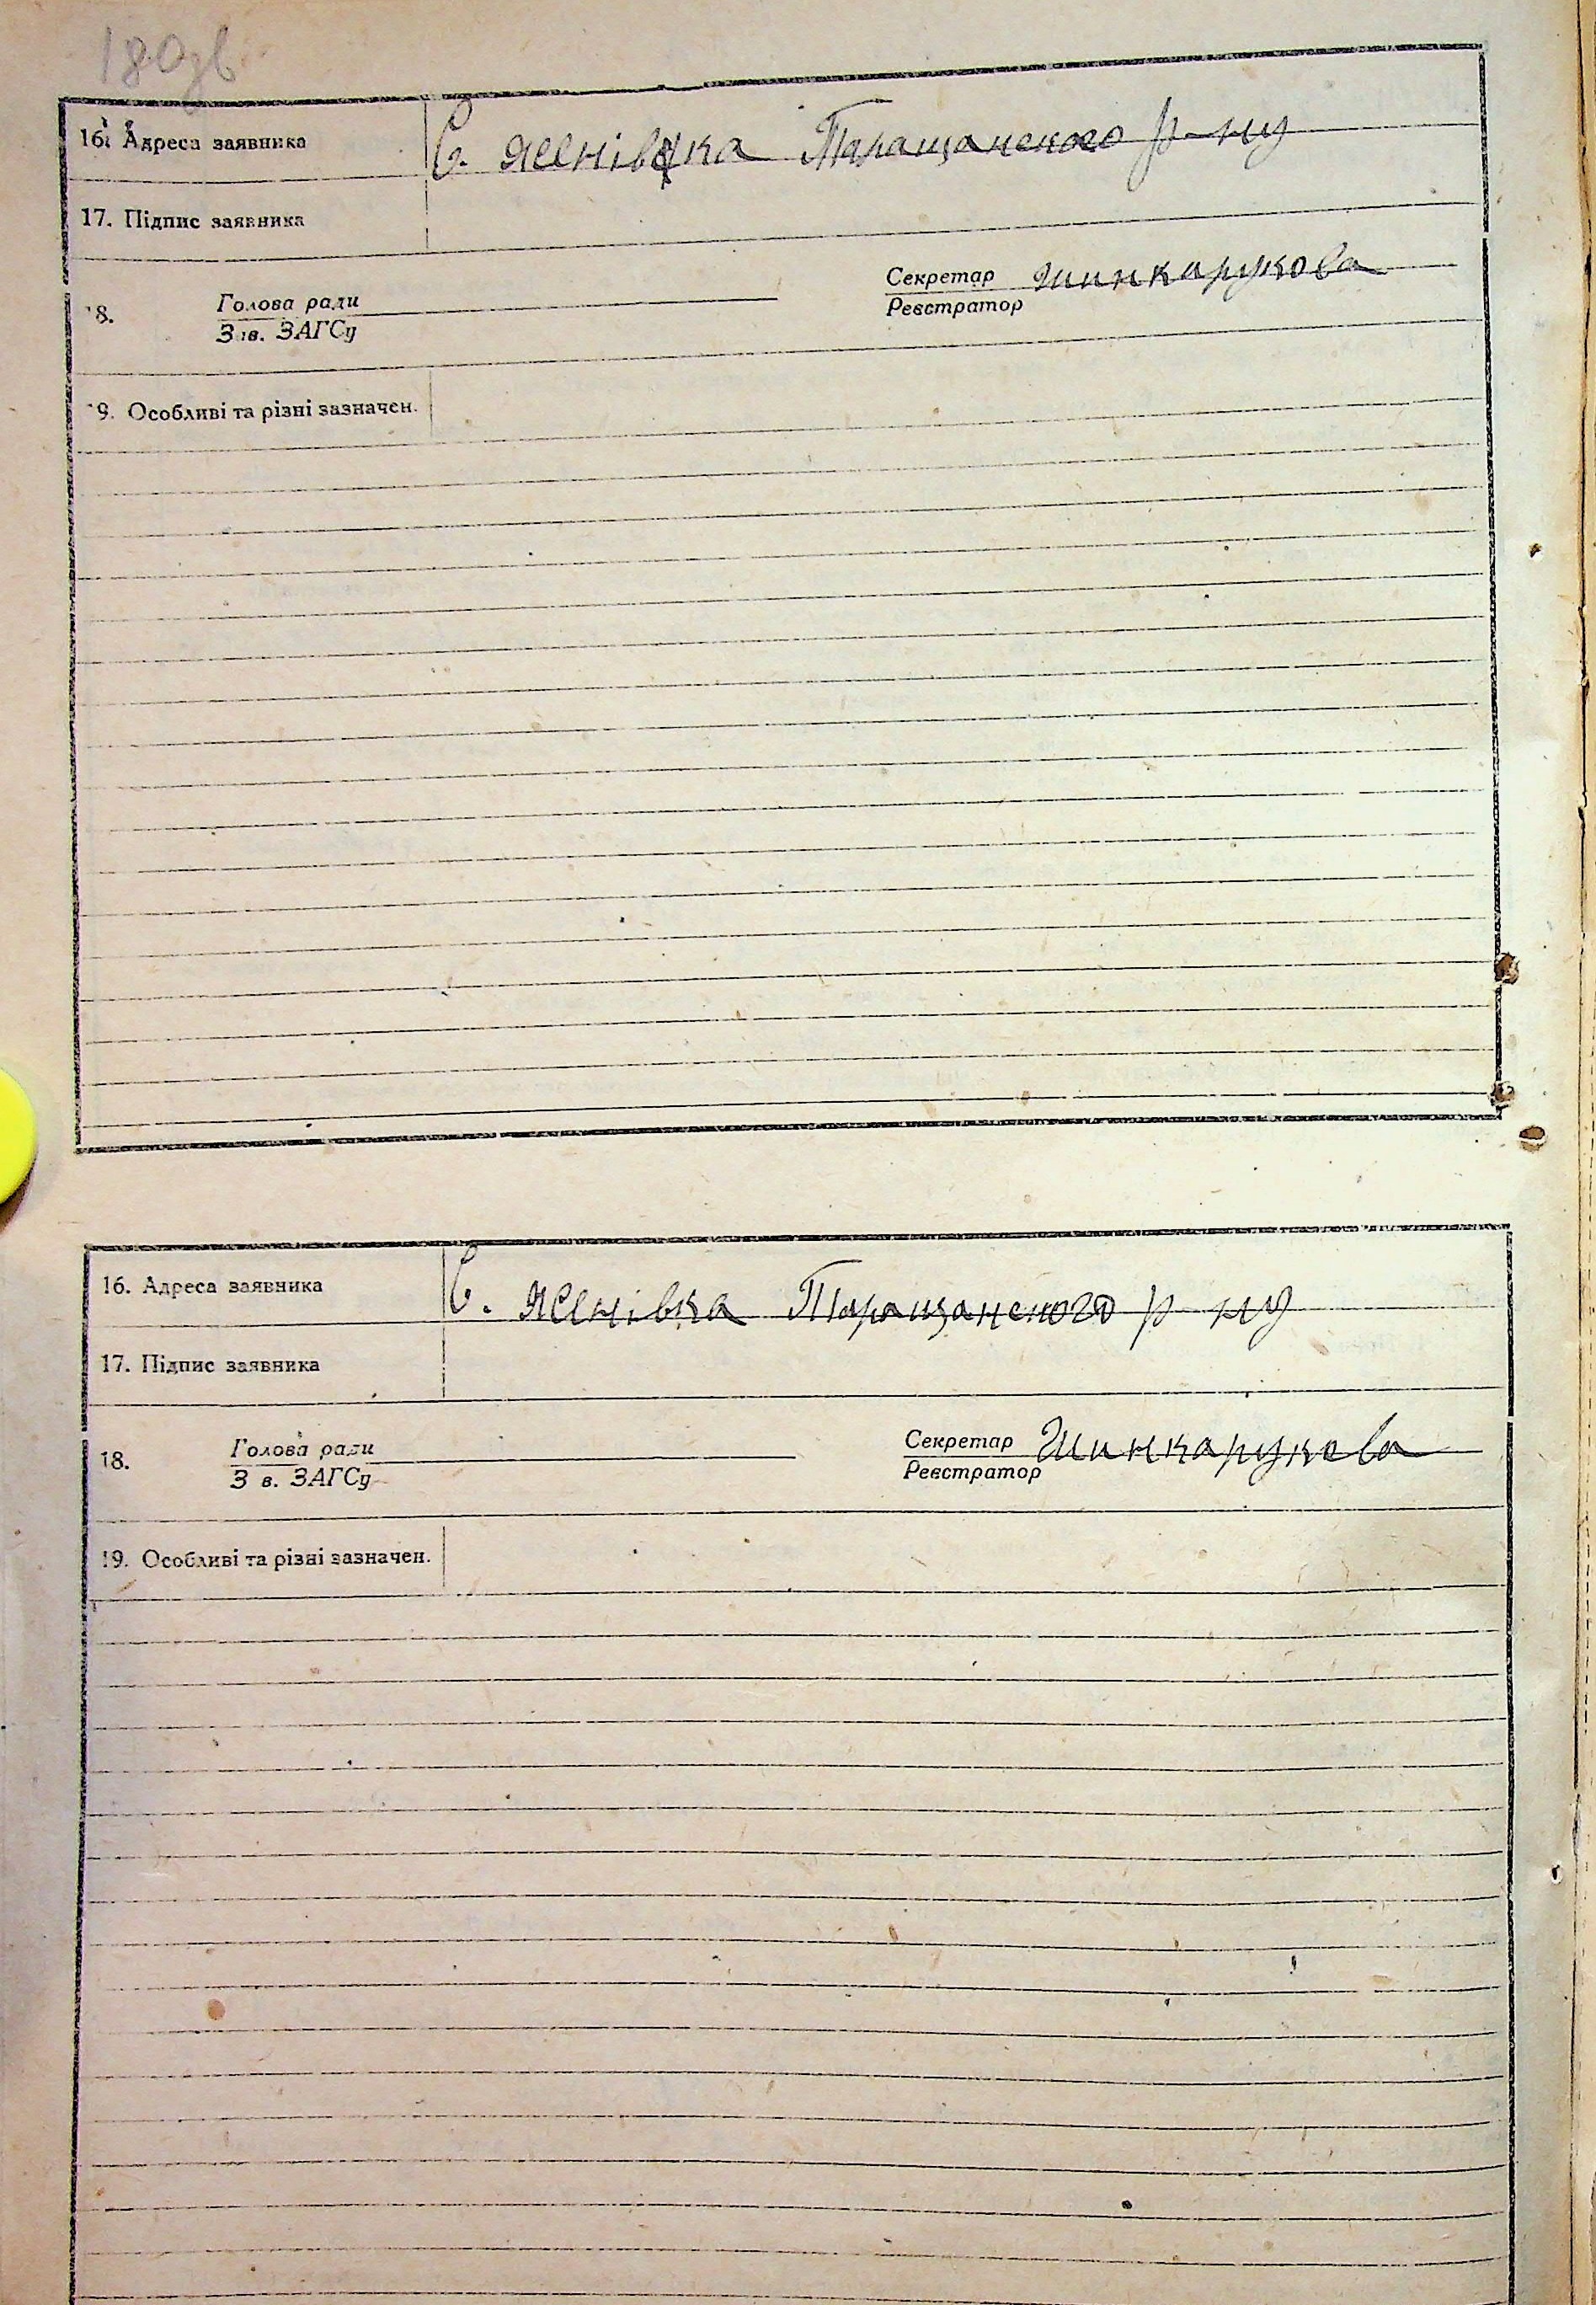 180зв
16. Адреса заявника С. Ясенівка Таращанского р-ну
17. Підпис заявника
Голова ради Секретар Шинкарукова
18. Зав. ЗАГСу Реєстратор
19. Особливі та різні зазначен.
16. Адреса заявника С. Ясенівка Таращанского р-ну
17. Підпис заявника
Голова ради Секретар Шинкарукова
18. Зав. ЗАГСу Реєстратор
19. Особливі та різні зазначен.